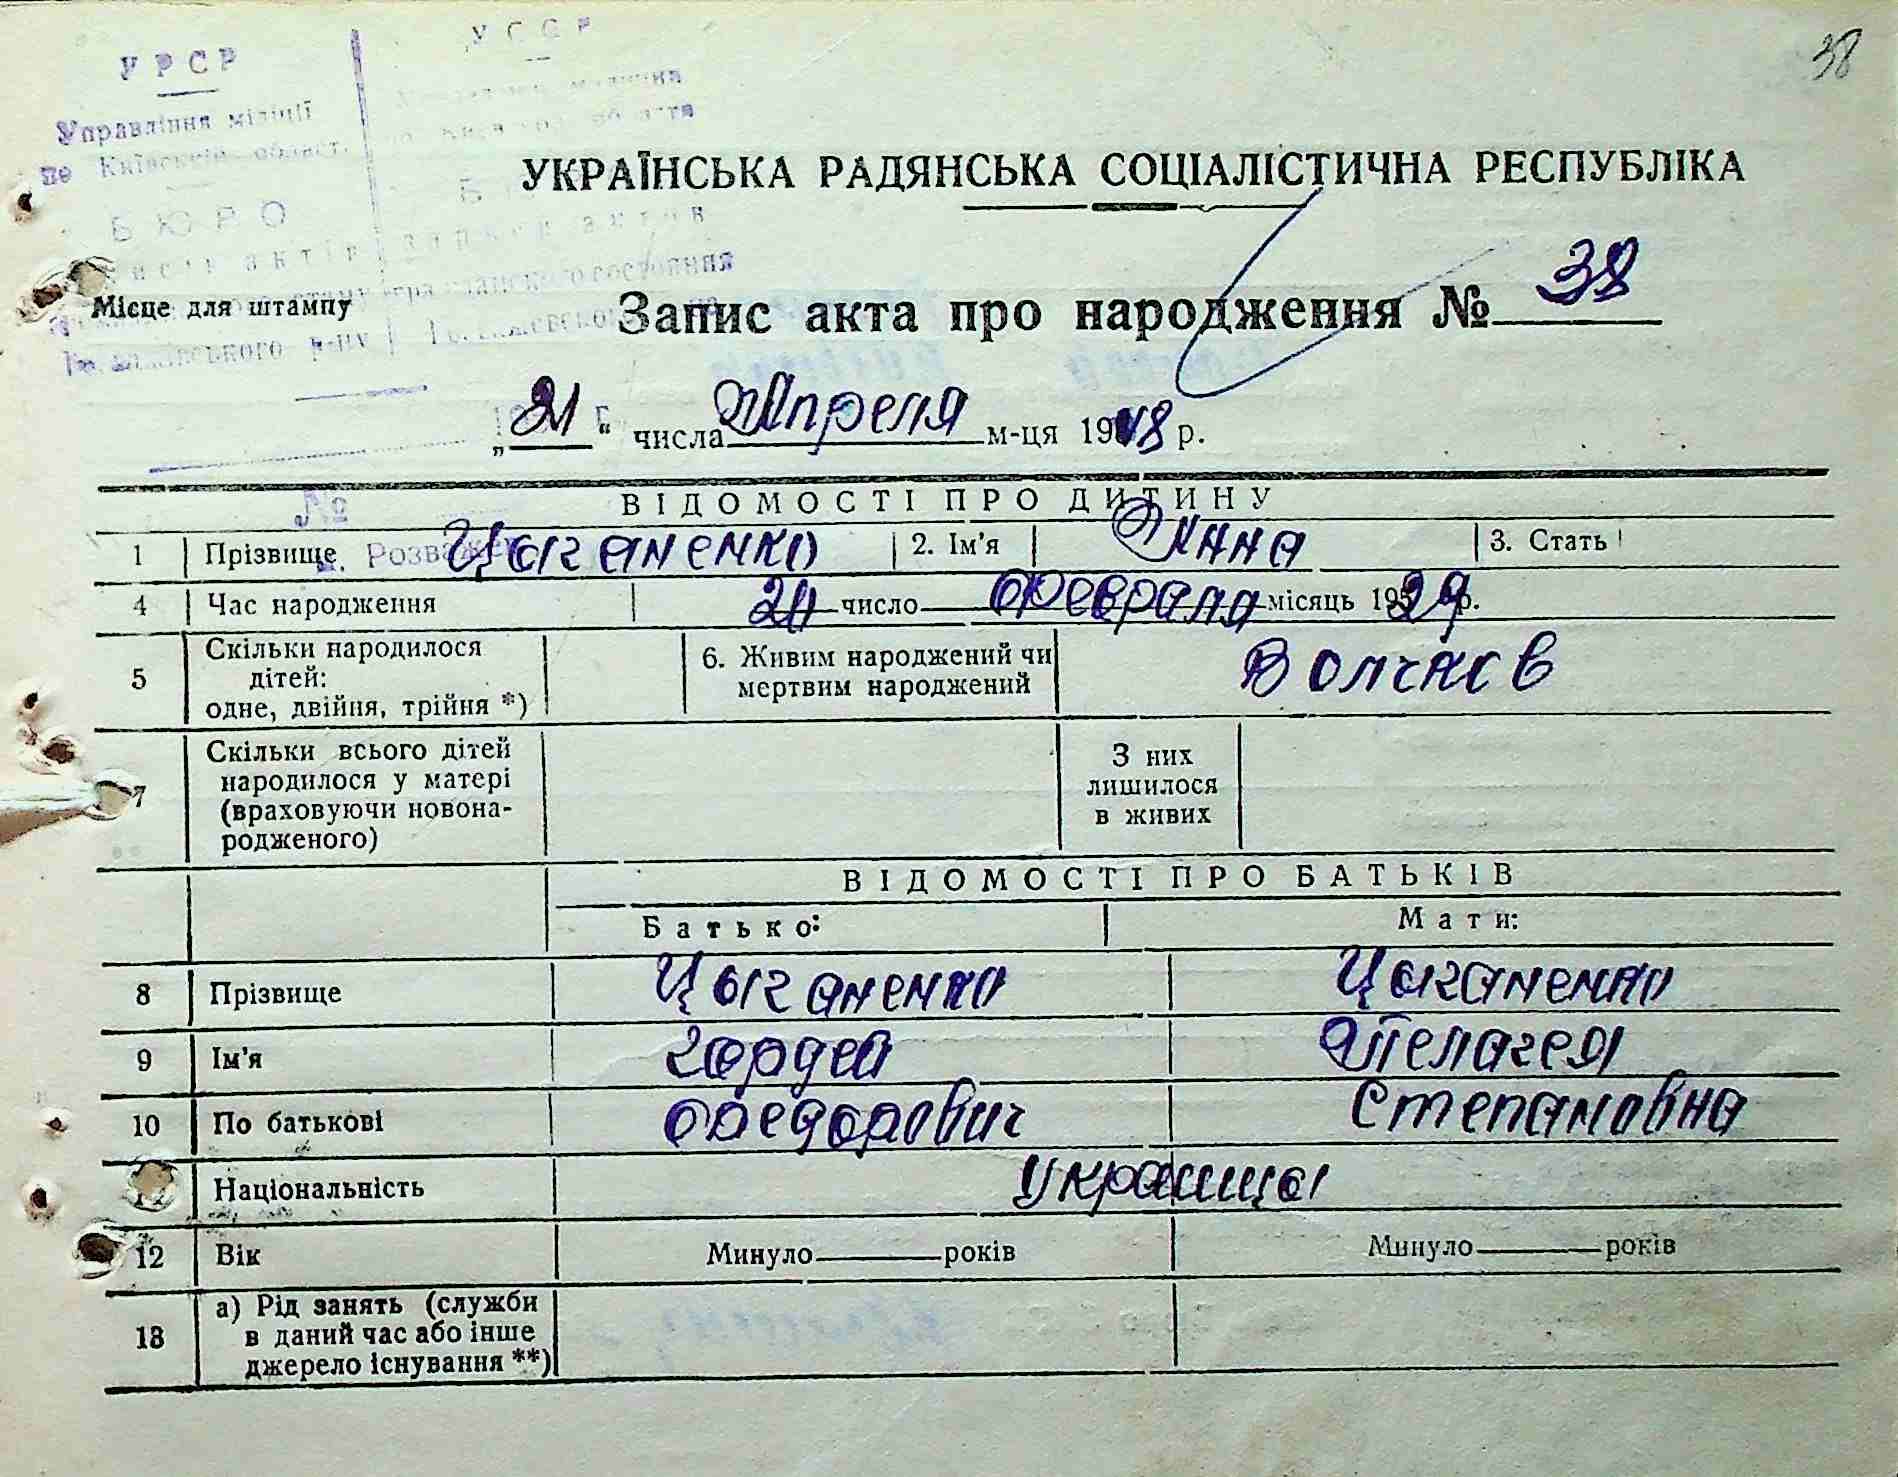 38
УРСР
УССР
Управління міліції
по Київській област.
БЮРО
Місце для штампу
УКРАЇНСЬКА РАДЯНСЬКА СОЦІАЛІСТИЧНА РЕСПУБЛІКА
Запис акта про народження № 38
„21“ числа Апреля м-ця 1948 р.
№
ВІДОМОСТІ ПРО ДИТИНУ
1 Прізвище Цыганенко 2. Ім'я Нина 3. Стать
4 Час народження 20 число февраля місяць 1929 р.
5 Скільки народилося дітей: одне, двійня, трійня *) 6. Живим народжений чи мертвим народжений
7 Скільки всього дітей народилося у матері (враховуючи новонародженого) З них лишилося в живих
ВІДОМОСТІ ПРО БАТЬКІВ
Батько: Мати:
8 Прізвище Цыганенко Цыганенко
9 Ім'я Гордей Пелагея
10 По батькові Федорович Степановна
Національність Украинцы
12 Вік Минуло років Минуло років
13 а) Рід занять (служби в даний час або інше джерело існування **)